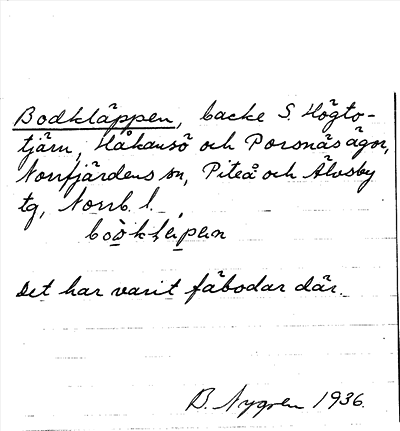 Bodkläppen, backe S. Högto-
tjärn, Håkansö och Porsnäs ägor,
Norrfjärdens sn, Piteå och Älvsby
tg, Norrb. l.
Det har varit fäbodar där.
B. Nygren 1936.